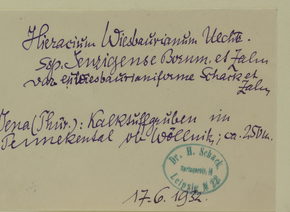 Hieracium Wiesbaurianum Uechtr.
ssp. Senzigense Bornm. et Zahn
var. euwiesbaurianiforme Schack et
Zahn
Jena (Thür.): Kalktuffgruben im
Pennekental ob Wöllnitz; ca. 250 m.
Dr. H. Schack
Leipzig N 22
17. 6. 1932